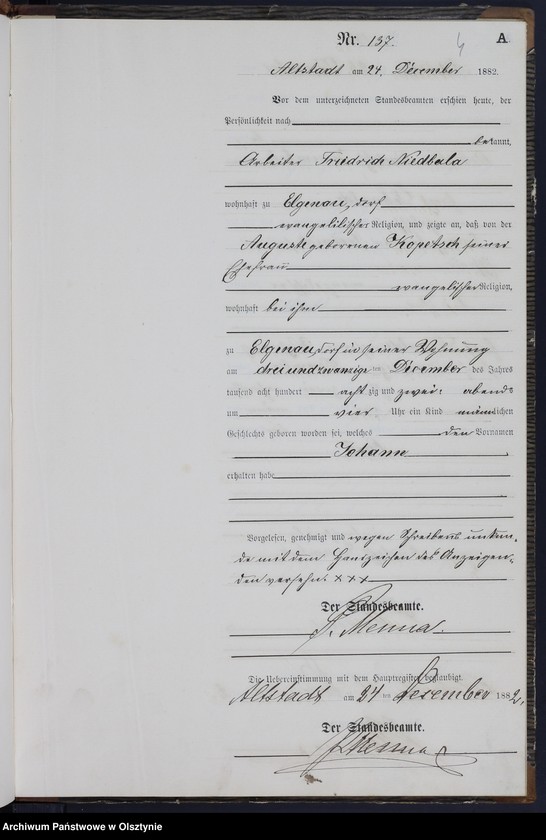 Nr. 137.
4
A
Altstadt am 24. December 1882.
Vor dem unterzeichneten Standesbeamten erschien heute, der
Persönlichkeit nach
bekannt,
Arbeiter Friedrich Niedbala
wohnhaft zu Elgenau, dorf
evangelischer Religion, und zeigte an, daß von der
Auguste geborenen Kopetsch seiner
Ehefrau
evangelischer Religion,
wohnhaft bei ihm
zu Elgenau, dorf in seiner Wohnung
am drei und zwanzigsten December des Jahres
tausend acht hundert achtzig und zwei abends
um vier Uhr ein Kind männlichen
Geschlechts geboren worden sei, welches den Vornamen
Johann
erhalten habe
Vorgelesen, genehmigt und wegen Schreibens unkun-
de mit dem Handzeichen des Anzeigen-
den versehn. x x x
Der Standesbeamte.
Die Uebereinstimmung mit dem Hauptregister beglaubigt.
Altstadt am 24 ten December 1882.
Der Standesbeamte.
Archiwum Państwowe w Olsztynie